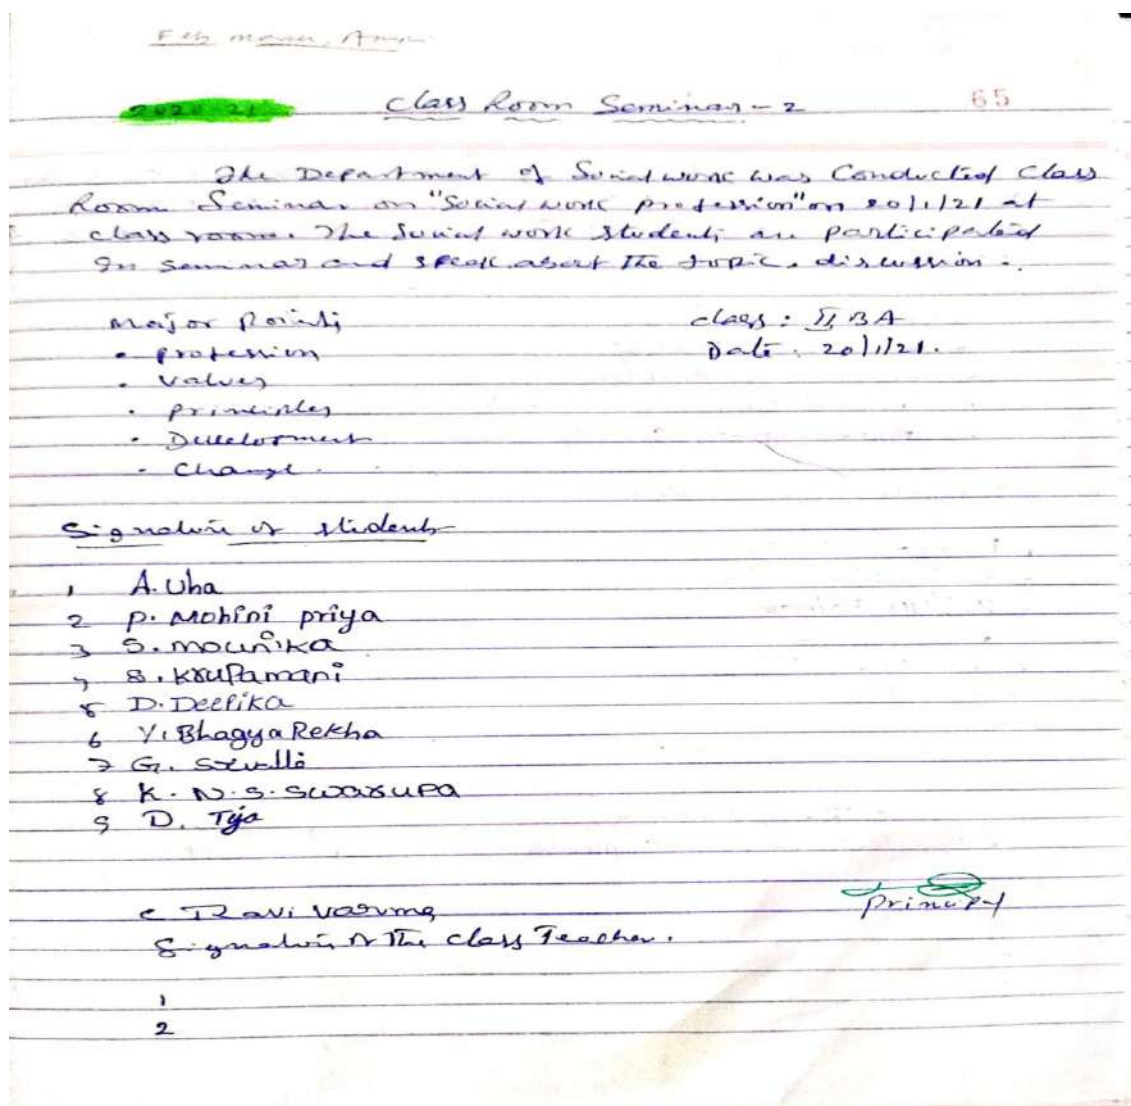 Feb
2020-21 Class Room Seminar-2 65
The Department of Social work was Conducted Class
Room Seminar on "Social work profession" on 20/1/21 at
class room. The Social work students are participated
In seminar and speak about the topic. discussion.
Major Points class: II BA
• profession Date: 20/1/21.
• Values
• principles
• Development
• Change.
Signature of students
1 A. Uha
2 P. Mohini priya
3 S. mounika
4 S. Krupamani
5 D. Deepika
6 V. Bhagya Rekha
7 G. Srivalli
8 K. N. S. Swarupa
9 D. Teja
C Ravi varma Principal
Signature of The class Teacher.
1
2